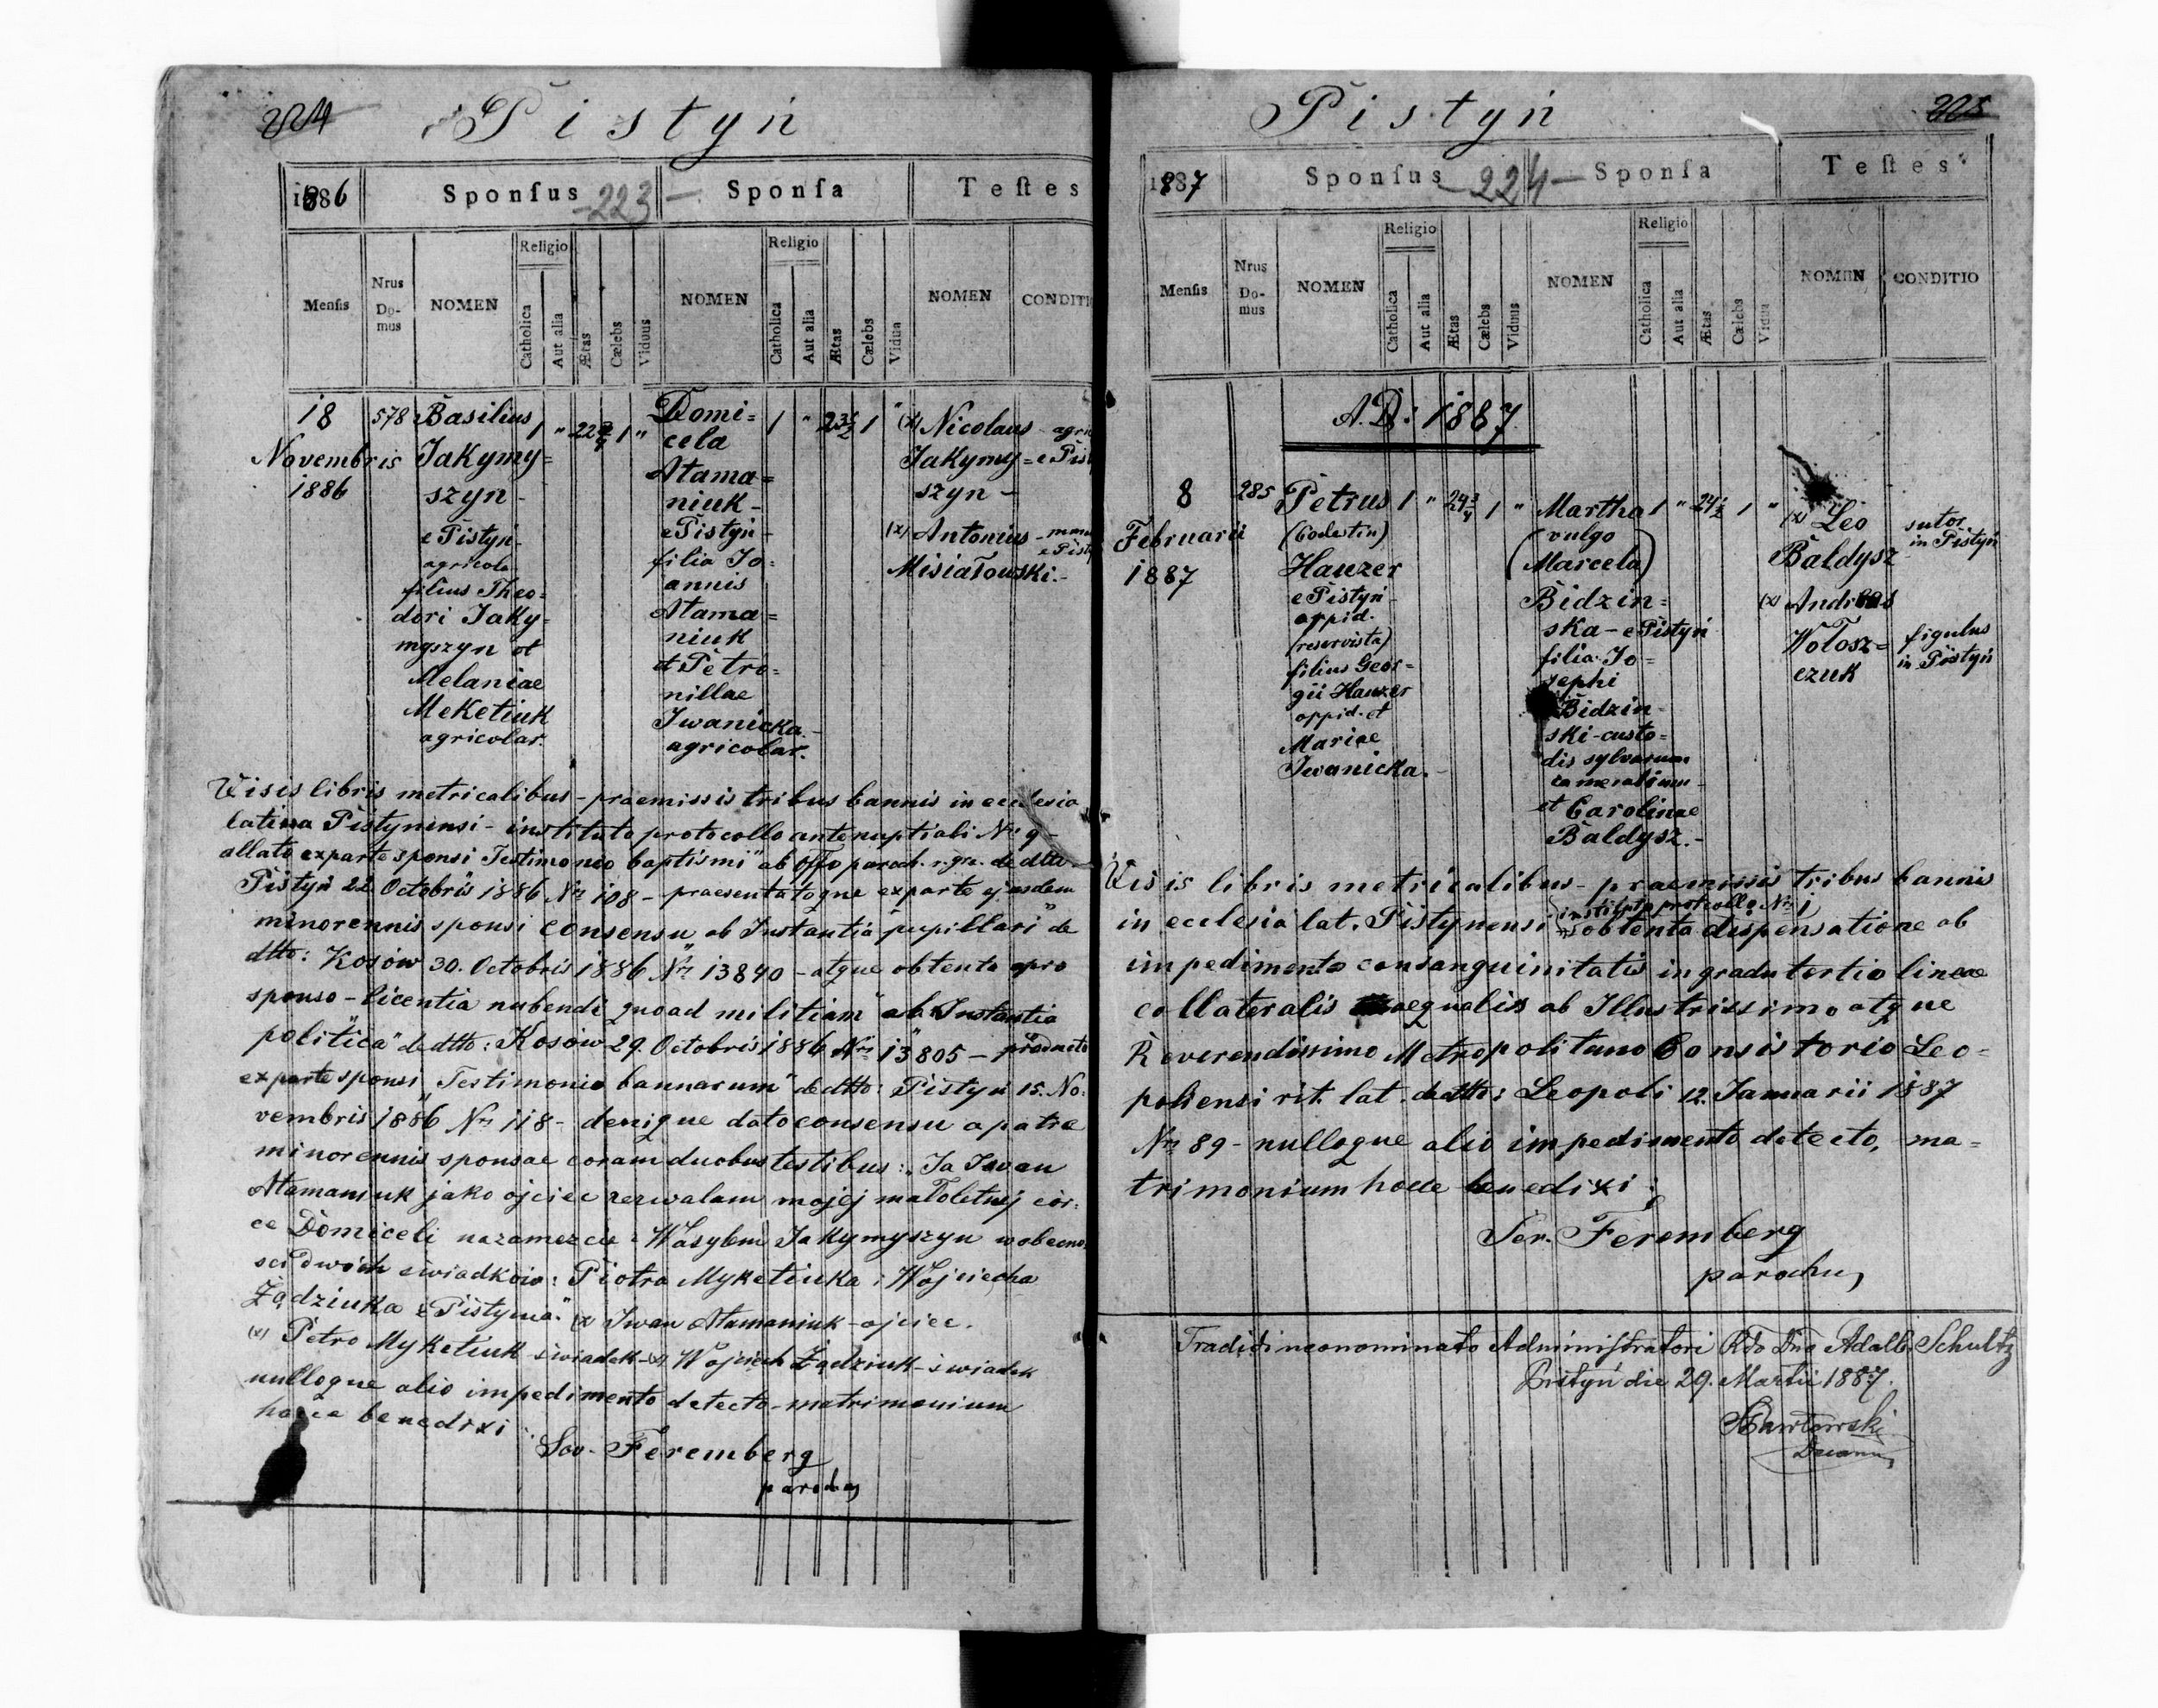 224
Pistyń
1886
Sponsus
223
Sponsa
Testes
Mensis
Nrus Do-mus
NOMEN
Religio
Catholica
Aut alia
Ætas
Cælebs
Viduus
NOMEN
Religio
Catholica
Aut alia
Ætas
Cælebs
Vidua
NOMEN
CONDITI
18
Novembris
1886
578
Basilius
Jakymy=
szyn -
e Pistyń -
agricola
filius Theo=
dori Jaky=
myszyn et
Melaniae
Meketiuk
agricolar.
1 " 22 1 "
Domi=
cela
Atama=
niuk -
e Pistyń -
filia Jo=
annis
Atama=
niuk
et Petro=
nillae
Iwanicka -
agricolar.
1 " 1 "
(x) Nicolaus -
Jakymy=
szyn -
(x) Antonius -
Misiałowski.-
Visis libris metricalibus - praemissis tribus bannis in ecclesia
latina Pistynensi - instituto protocollo antenuptiali Nr. 9 -
allato ex parte sponsi "Testimonio baptismi" ab Offo paroch. r. gr. de dtto
Pistyń 22. Octobris 1886 Nr. 108 - praesentatoque ex parte ejusdem
minorennis sponsi consensu ab Instantia "pupillari" de
dtto: Kosów 30. Octobris 1886 Nr. 13840 - atque obtenta pro
sponso - licentia nubendi "quoad militiam" ab Instantia
"politica" de dtto: Kosów 29. Octobris 1886 Nr. 13805 - producto
ex parte sponsi "Testimonio bannorum" de dtto: Pistyń 15. No=
vembris 1886 Nr. 118 - denique dato consensu a patre
minorennis sponsae coram duobus testibus: "Ja Iwan
Atamaniuk jako ojciec zezwalam mojej małoletniej cór=
ce Domiceli na zamęzcie z Wasylem Jakymyszyn w obecno=
sci dwóch świadków: Piotra Myketiuka i Wojciecha
Żądziuka z Pistynia." (x) Iwan Atamaniuk - ojciec.
(x) Petro Myketiuk świadek - (x) Wojciech Żądziuk - świadek
nulloque alio impedimento detecto - matrimonium
hocce benedixi:
Sev. Feremberg
parochus
Pistyń
225
1887
Sponsus
224
Sponsa
Testes
Mensis
Nrus Do-mus
NOMEN
Religio
Catholica
Aut alia
Ætas
Cælebs
Viduus
NOMEN
Religio
Catholica
Aut alia
Ætas
Cælebs
Vidua
NOMEN
CONDITIO
A.D: 1887
8
Februarii
1887
285
Petrus
(Coelestin)
Hauzer
e Pistyń -
oppid.
(reservista)
filius Geor=
gii Hauzer
oppid. et
Mariae
Iwanicka. -
1 " 24 3/4 1 "
Martha
(vulgo
Marcela)
Bidzin=
ska - e Pistyń
filia Jo=
sephi
Bidzin=
ski - custo=
dis sylvarum
cameralium -
et Carolinae
Bałdysz. -
1 " 24 1/2 1 "
(x) Leo
Bałdysz
sutor
in Pistyń
(x) Andreas
Wołosz=
czuk
figulus
in Pistyń
Visis libris metricalibus - praemissis tribus bannis
in ecclesia lat. Pistynensi instituto protocollo Nr. 1 obtenta dispensatione ab
impedimento consanguinitatis in gradu tertio lineae
collateralis aequalis ab Illustrissimo atque
Reverendissimo Metropolitano Consistorio Leo=
poliensi rit. lat. de dtto: Leopoli 12. Januarii 1887
Nr. 89 - nulloque alio impedimento detecto, ma=
trimonium hocce benedixi:
Sev. Feremberg
parochus
Tradidi neonominato Administratori Rdo Dno Adalb. Schultz
Pistyń die 29. Martii 1887.
Pawłowski
Decanus